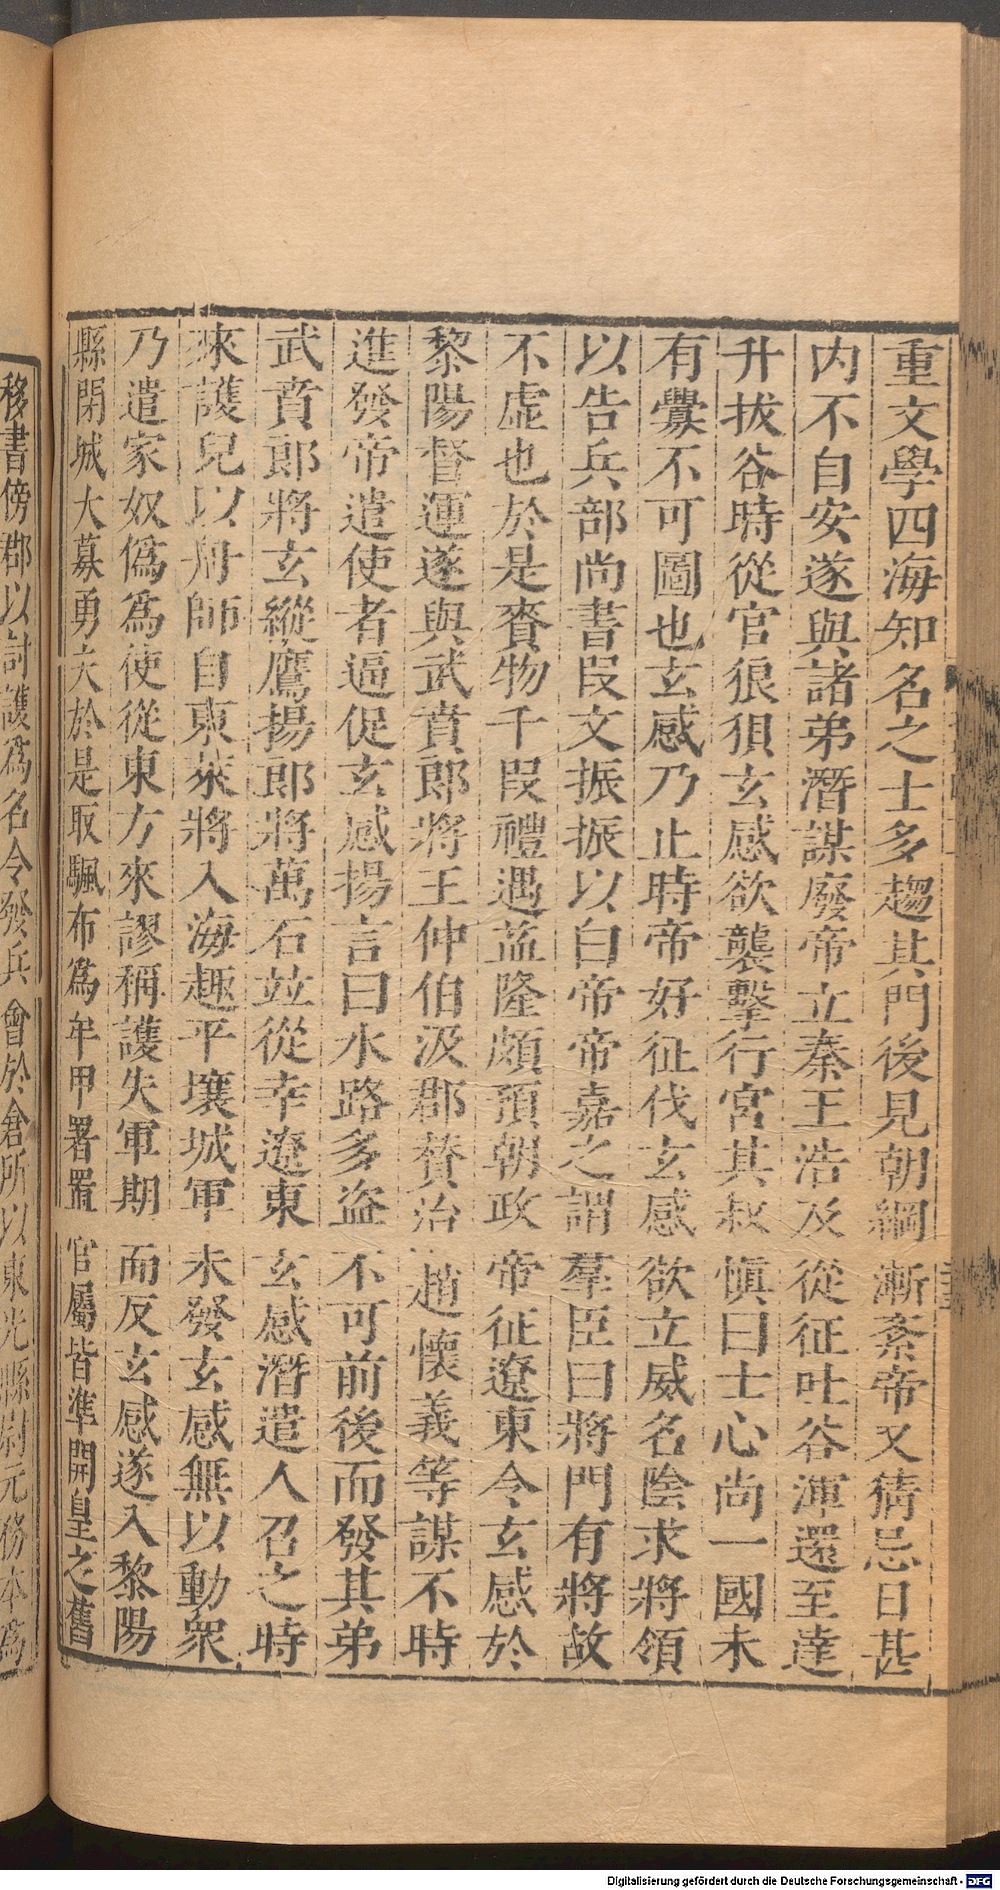 重文學四海知名之士多趨其門後見朝綱漸紊帝又猜忌日甚
內不自安遂與諸弟潛謀廢帝立秦王浩及從征吐谷渾還至達
升拔谷時從官狼狽玄感欲襲擊行宮其叔慎曰士心尚一國未
有釁不可圖也玄感乃止時帝好征伐玄感欲立威名陰求將領
以告兵部尚書段文振振以白帝帝嘉之謂羣臣曰將門有將故
不虛也於是賚物千段禮遇益隆頗預朝政帝征遼東令玄感於
黎陽督運遂與武賁郎將王仲伯汲郡贊治趙懷義等謀不時
進發帝遣使者逼促玄感揚言曰水路多盜不可前後而發其弟
武賁郎將玄縱鷹揚郎將萬石竝從幸遼東玄感潛遣人召之時
來護兒以舟師自東萊將入海趣平壤城軍未發玄感無以動衆
乃遣家奴僞爲使從東方來謬稱護失軍期而反玄感遂入黎陽
縣閉城大募勇夫於是取颿布爲牟甲署置官屬皆準開皇之舊
移書傍郡以討護爲名令發兵會於倉所以東光縣尉元務本爲
Digitalisierung gefördert durch die Deutsche Forschungsgemeinschaft - DFG